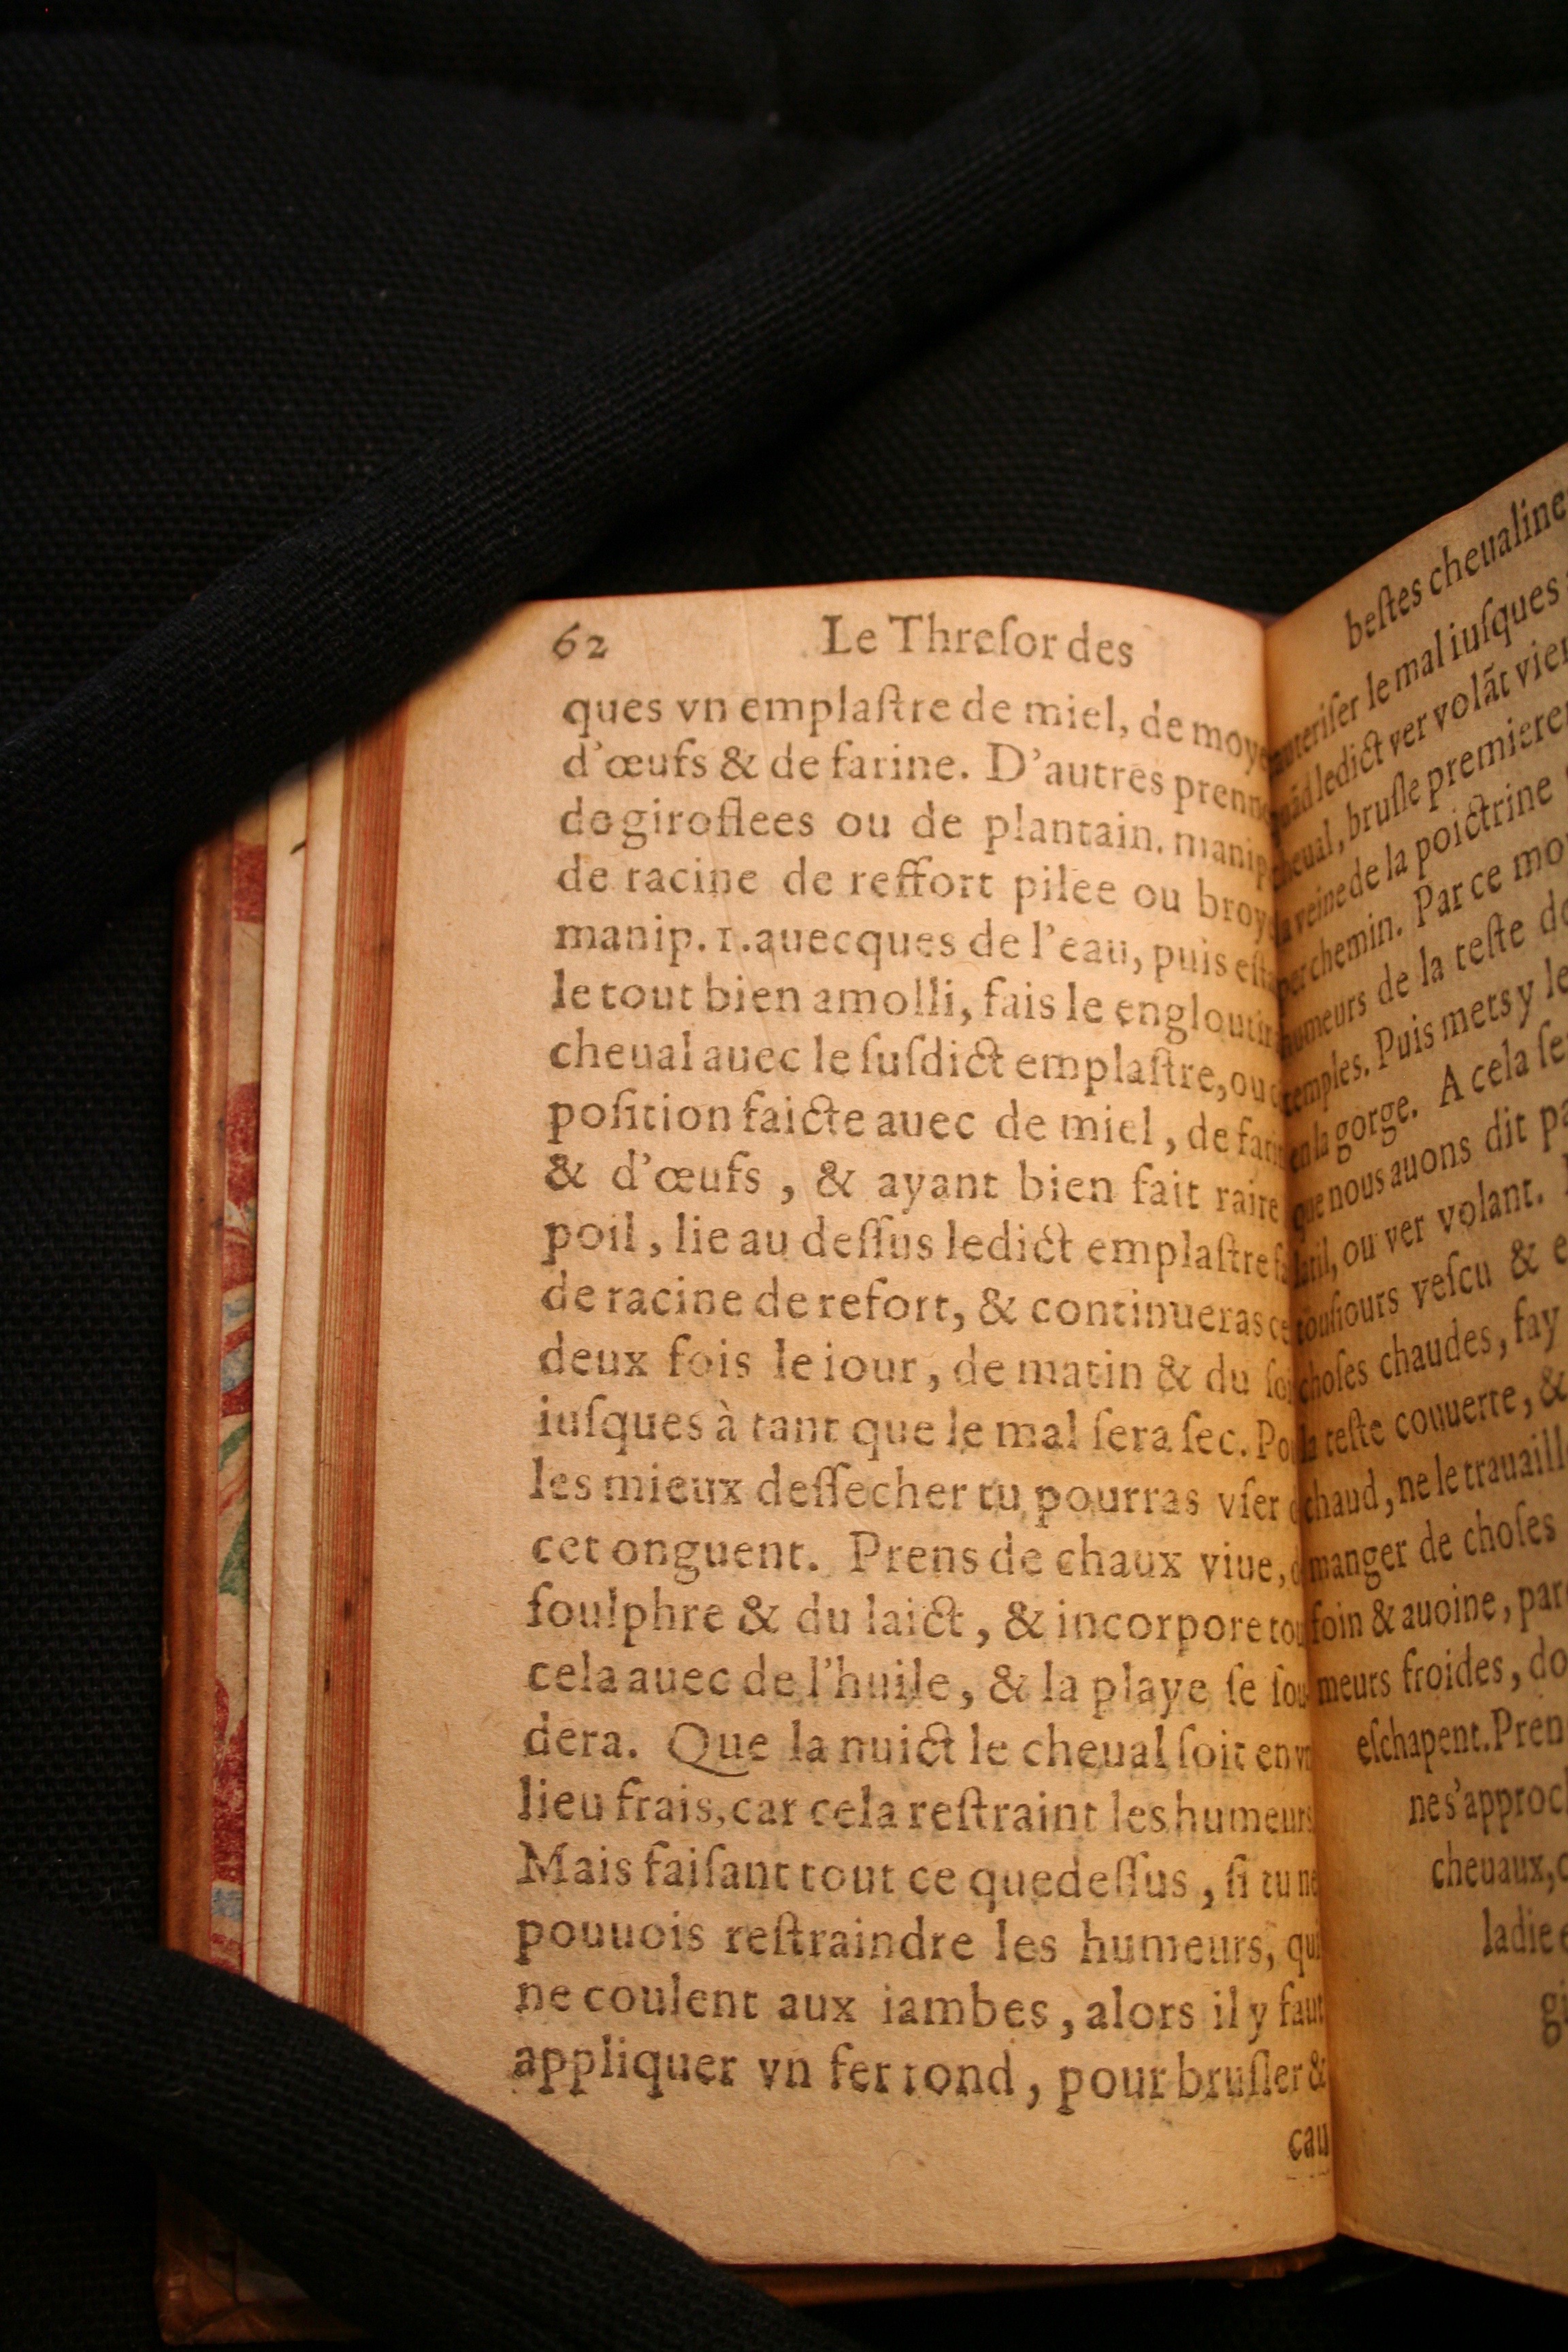 62 Le Threſor des
ques vn emplaſtre de miel, de moye
d'œufs & de farine. D'autres prenn
de giroflees ou de plantain. manip
de racine de reffort pilee ou broy
manip. 1. auecques de l'eau, puis eſta
le tout bien amolli, fais le engloutir
cheual auec le ſuſdict emplaſtre, ou
poſition faicte auec de miel, de fari
& d'œufs, & ayant bien fait raire
poil, lie au deſſus ledict emplaſtre
de racine de refort, & continueras ce
deux fois le iour, de matin & du ſo
iuſques à tant que le mal ſera ſec. Po
les mieux deſſecher tu pourras vſer
cet onguent. Prens de chaux viue,
ſoulphre & du laict, & incorpore tou
cela auec de l'huile, & la playe ſe ſou
dera. Que la nuict le cheual ſoit en vn
lieu frais, car cela reſtraint les humeurs
Mais faiſant tout ce que deſſus, ſi tu ne
pouuois reſtraindre les humeurs, qui
ne coulent aux iambes, alors il y faut
appliquer vn fer rond, pour bruſler &
cau
beſtes cheualine
teriſer le mal iuſques
ledict ver volāt vien
cheual, bruſle premiere
la veine de la poictrine
per chemin. Par ce mo
humeurs de la teſte de
temples. Puis mets y le
en la gorge. A cela ſe
que nous auons dit pa
ou ver volant.
touſiours veſcu & e
choſes chaudes, fay
la teſte couuerte, &
chaud, ne le trauaill
manger de choſes
foin & auoine, par
meurs froides, do
eſchapent. Pren
ne s'approch
cheuaux, c
ladie e
gi